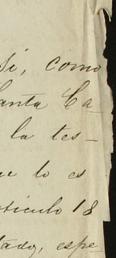 Si, como
Santa Ca
la tes-
ue lo es
rticulo 18
tado, espe